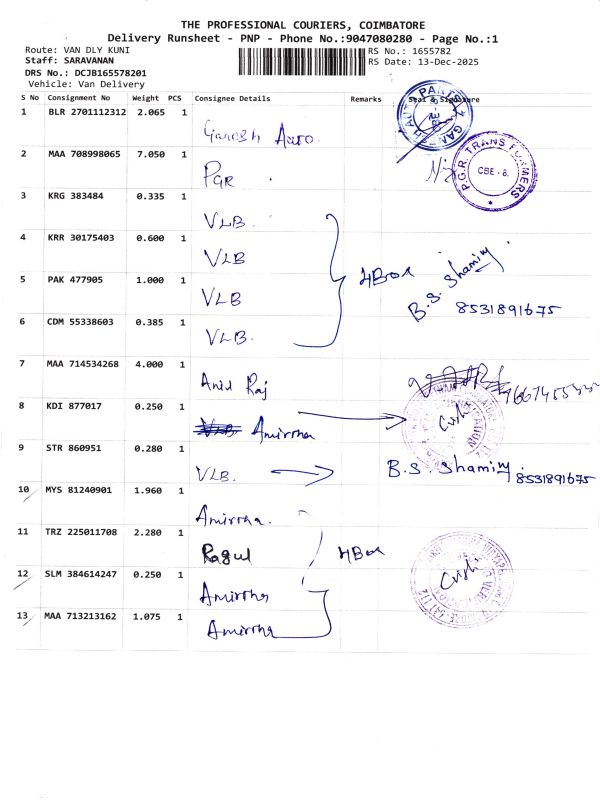 THE PROFESSIONAL COURIERS, COIMBATORE
Delivery Runsheet - PNP - Phone No.:9047080280 - Page No.:1
Route: VAN DLY KUNI RS No.: 1655782
Staff: SARAVANAN RS Date: 13-Dec-2025
DRS No.: DCJB165578201
Vehicle: Van Delivery
S No Consignment No Weight PCS Consignee Details Remarks Seal & Signature
1 BLR 2701112312 2.065 1
Ganesh Auto.
AUTO PARTS
2 MAA 708998065 7.050 1
PGR
P.G.R. TRANS FORMERS
CBE - 6.
3 KRG 383484 0.335 1
VLB.
4 KRR 30175403 0.600 1
VLB
4 Box
B.S. Shaminy
8531891675
5 PAK 477905 1.000 1
VLB
6 CDM 55338603 0.385 1
VLB.
7 MAA 714534268 4.000 1
Anid Raj
8 KDI 877017 0.250 1
VLB Amirrha
9 STR 860951 0.280 1
VLB. B.S. Shaminy 8531891675
10 MYS 81240901 1.960 1
Amirrha.
11 TRZ 225011708 2.280 1
Ragul 4 Box
12 SLM 384614247 0.250 1
Amirrha
13 MAA 713213162 1.075 1
Amirrha